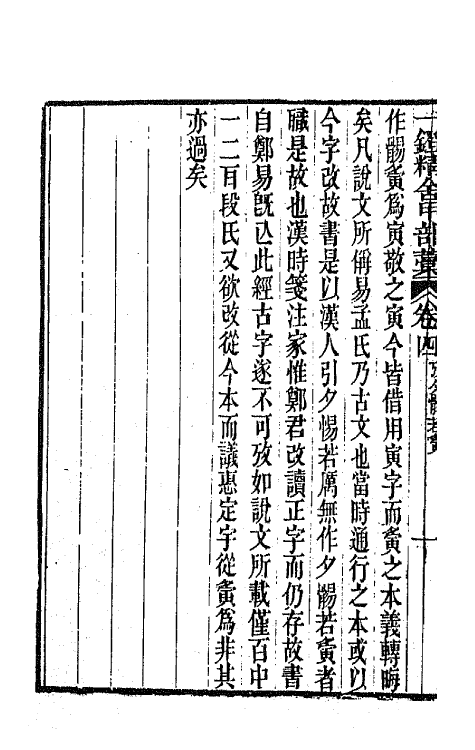 作䏶夤爲寅敬之寅今皆借用寅字而夤之本義轉晦
矣凡說文所偁易孟氏乃古文也當時通行之本或以
今字改故書是以漢人引夕惕若厲無作夕䏶若夤者
職是故也漢時箋注家惟鄭君改讀正字而仍存故書
自鄭易旣亾此經古字遂不可攷如說文所載僅百中
一二耳段氏又欲改從今本而議惠定宇從夤爲非其
亦過矣
卷四